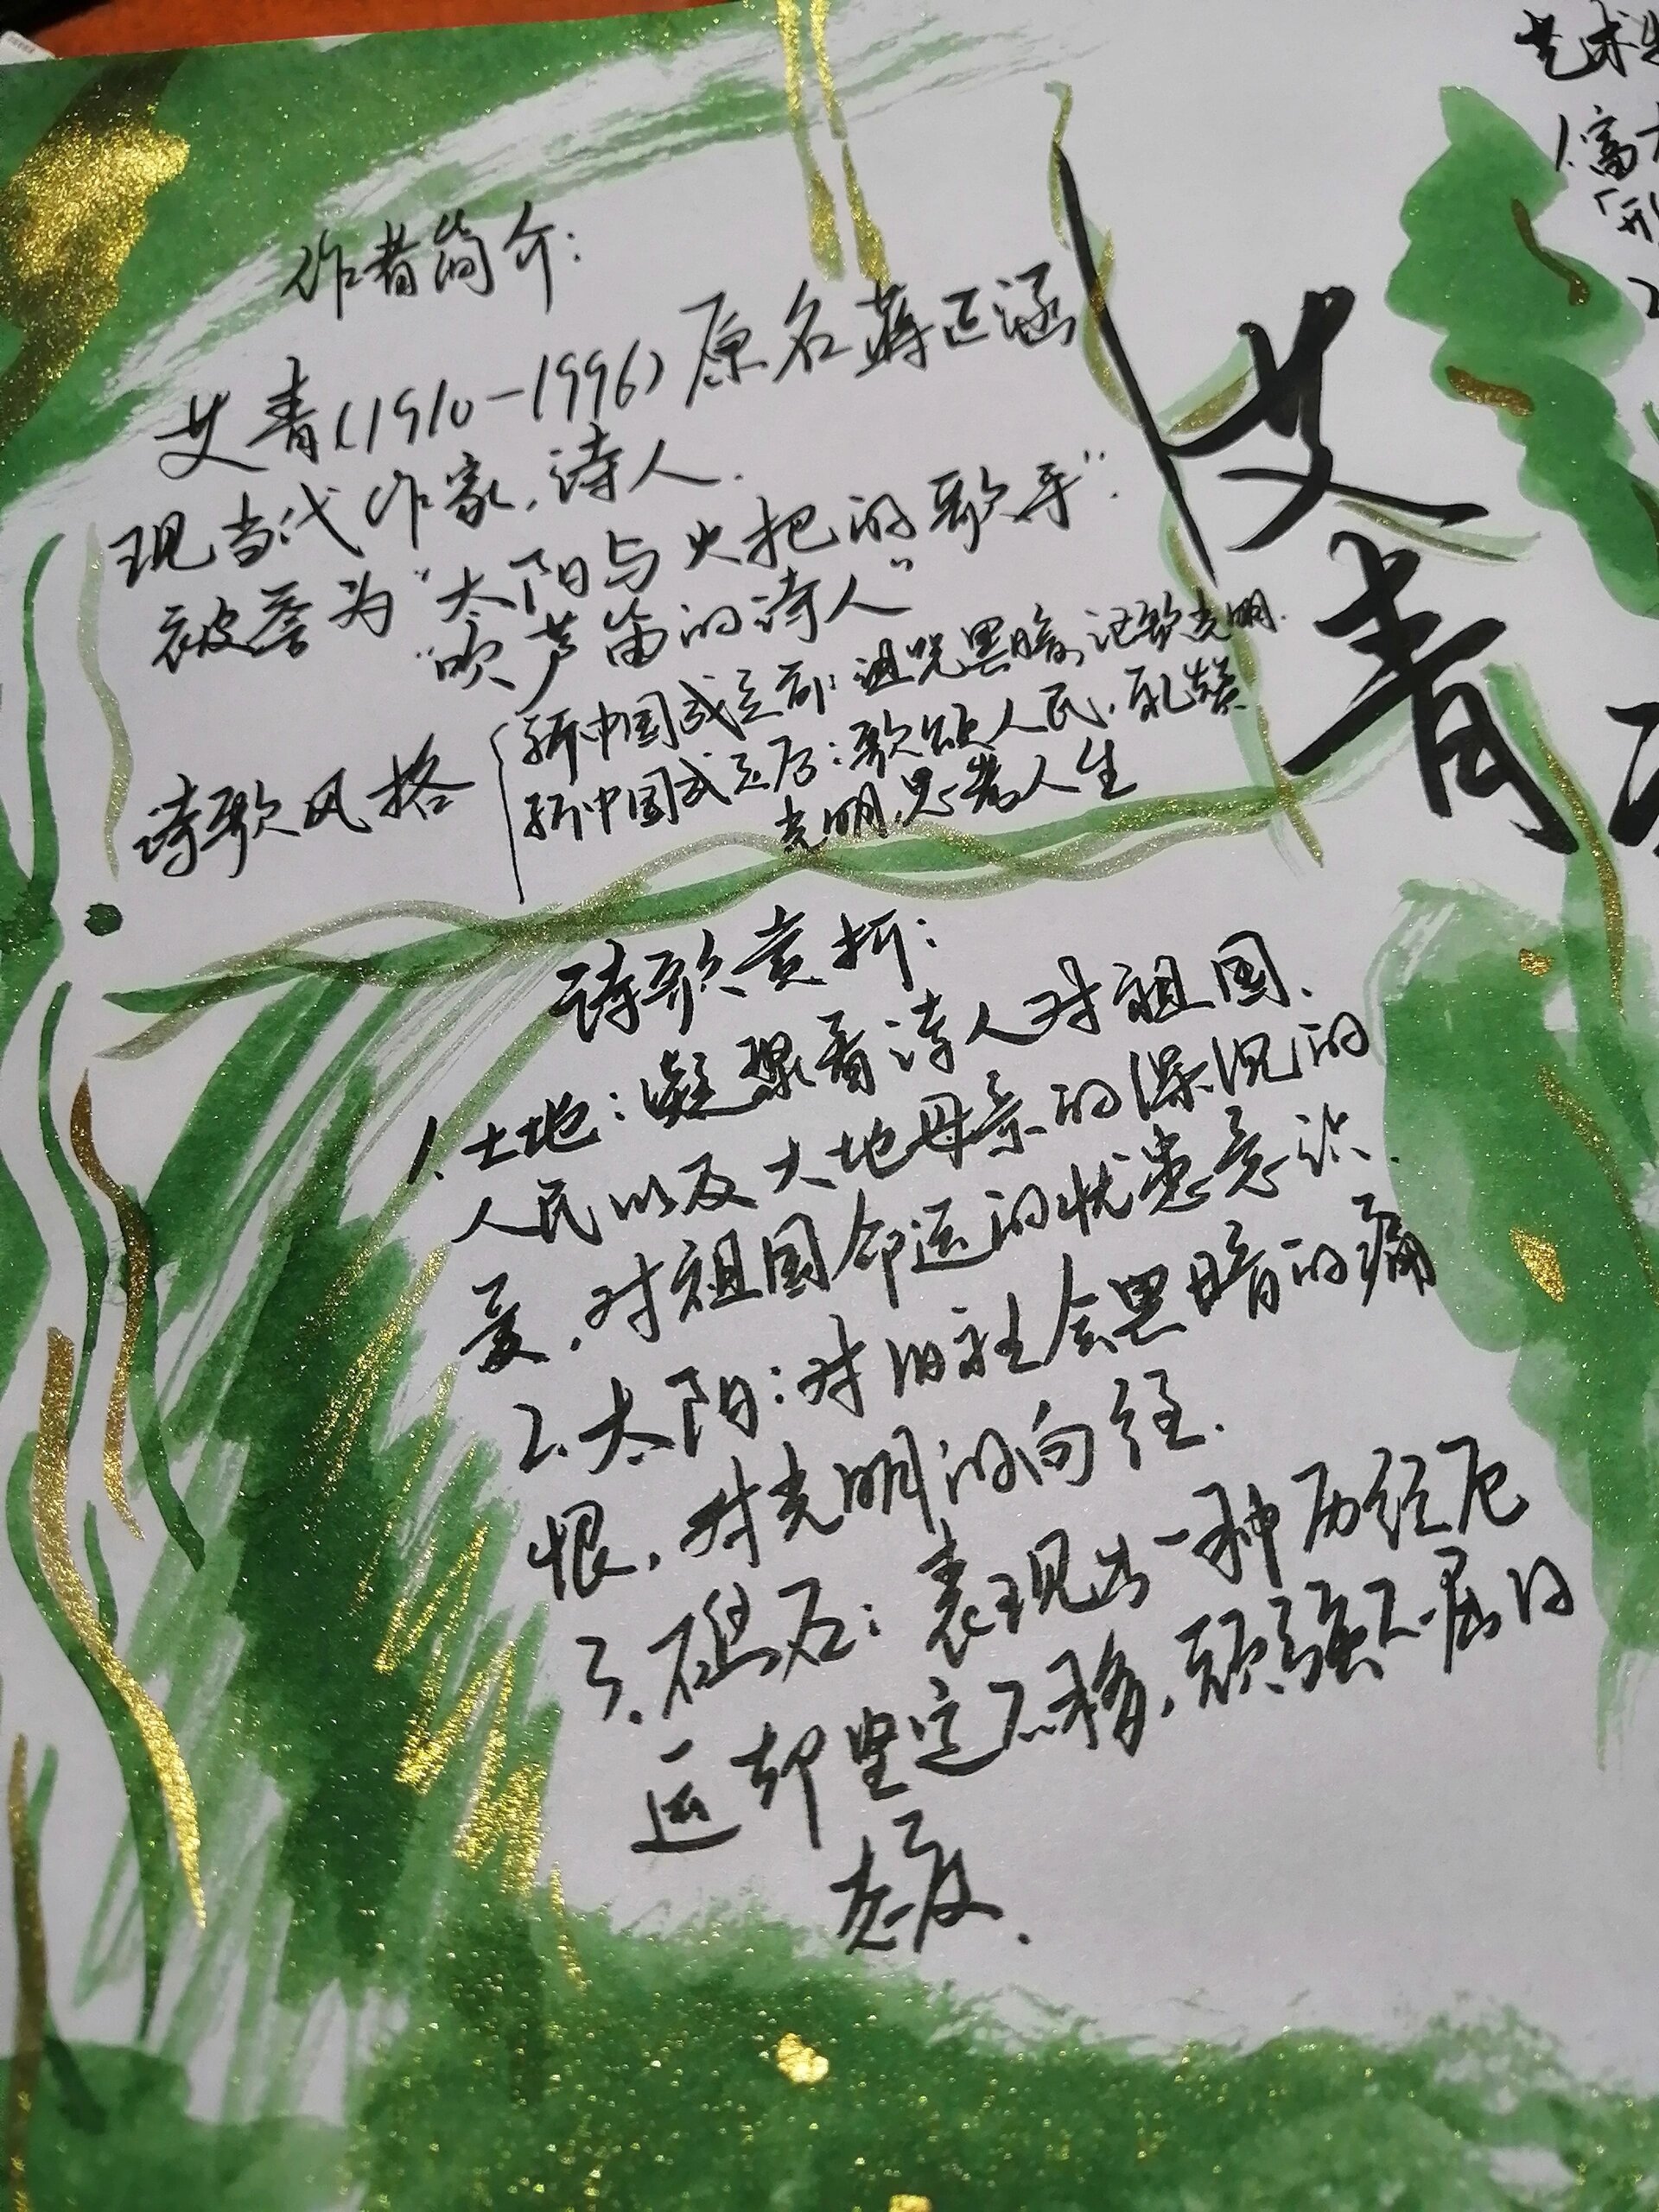 作者简介：
艾青（1910-1996）原名蒋正涵
现当代作家，诗人．
被誉为“太阳与火把的歌手”．
“吹芦笛的诗人”
诗歌风格
新中国成立前：诅咒黑暗，讴歌光明．
新中国成立后：歌颂人民，礼赞
光明，思考人生
诗歌赏析：
1.土地：凝聚着诗人对祖国．
人民以及大地母亲的深沉的
爱，对祖国命运的忧患意识．
2.太阳：对旧社会黑暗的痛
恨，对光明的向往．
3.礁石：表现出一种历经厄
运却坚定不移，顽强不屈的
态度．
艾青
艺术
1.富